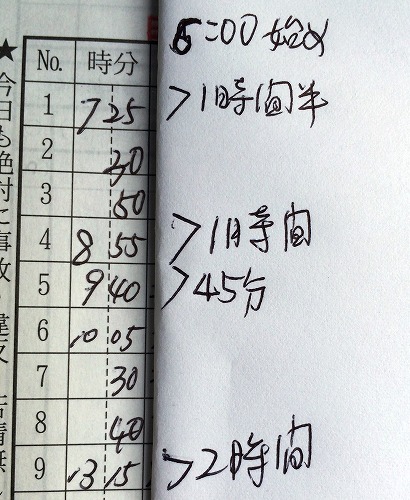 ★今日も絶対に事故・違反・苦情無
No. 時分
1 7 25
2 30
3 50
4 8 55
5 9 40
6 10 05
7 30
8 40
9 13 15
6:00 始め
>1時間半
>1時間
>45分
>2時間